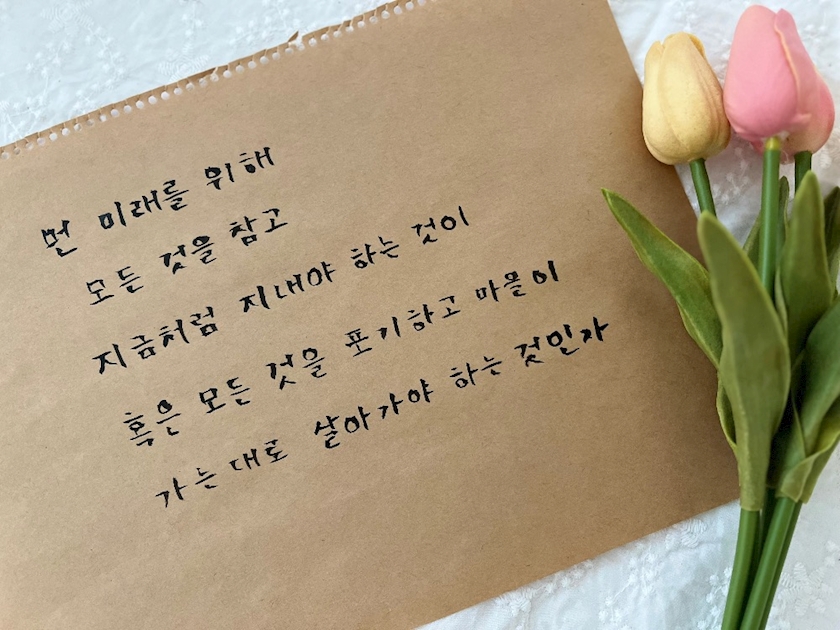 먼 미래를 위해
모든 것을 참고
지금처럼 지내야 하는 것이
혹은 모든 것을 포기하고 마음이
가는대로 살아가야 하는 것인가